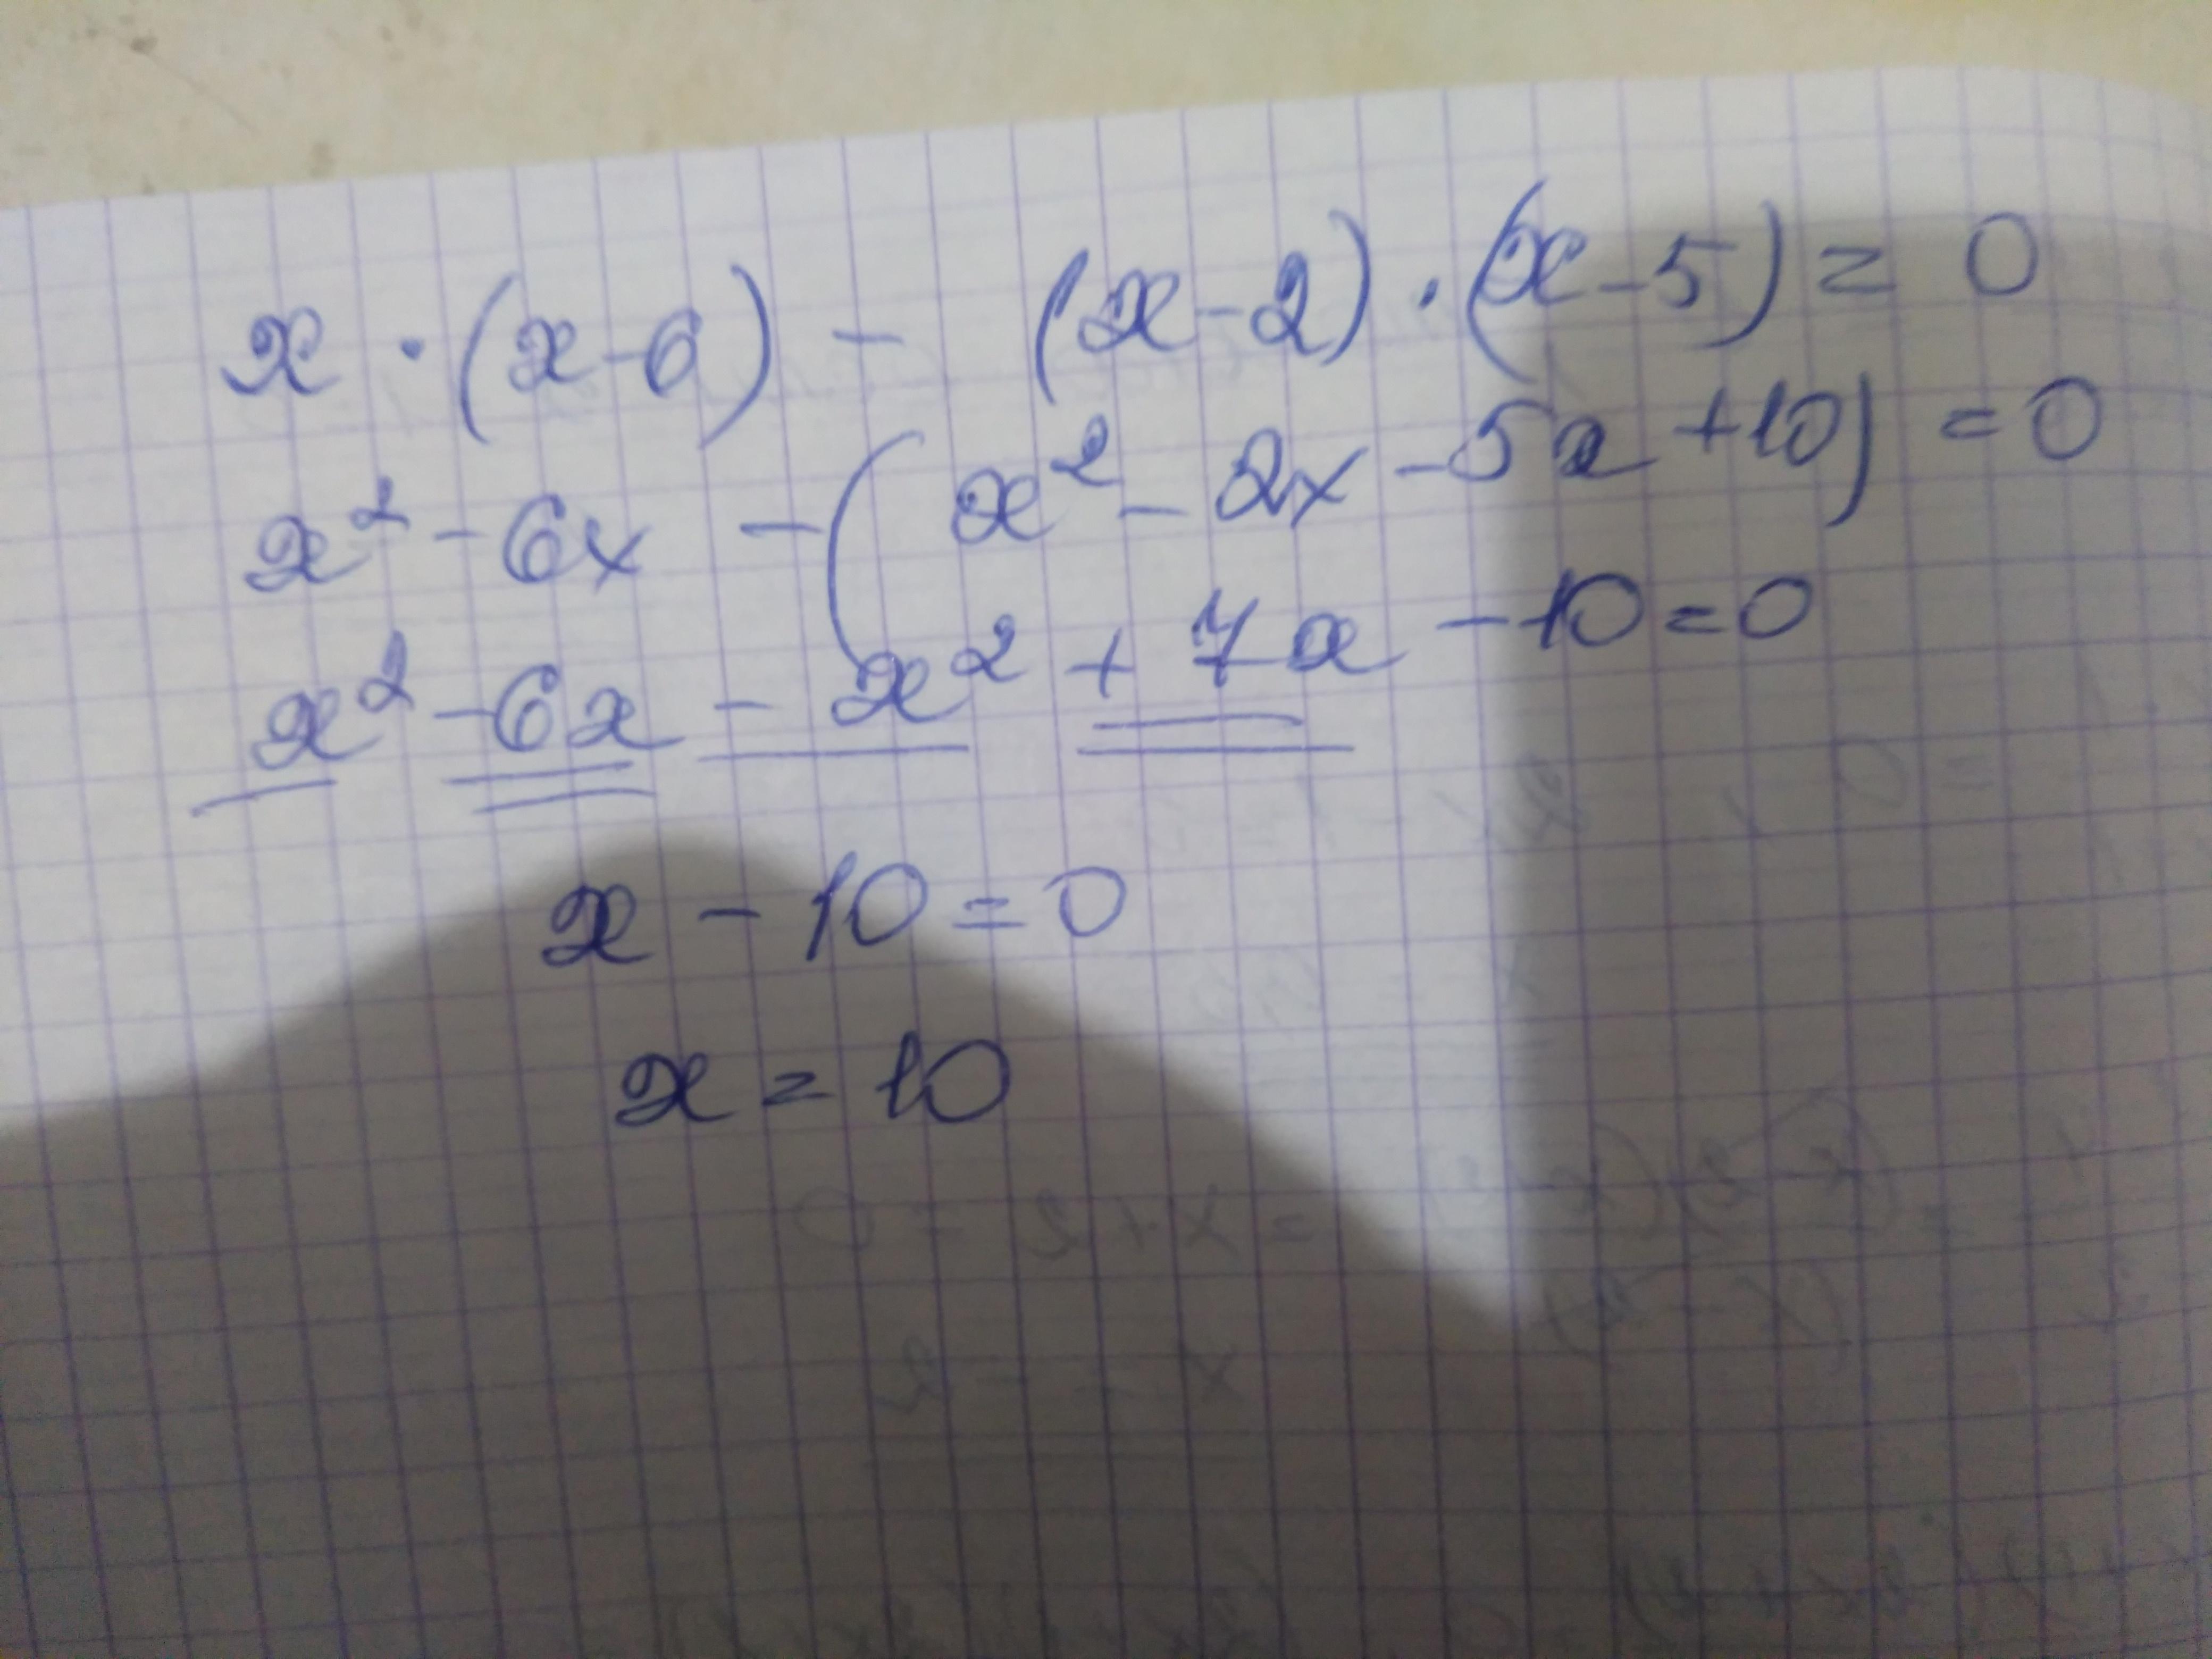 x · (x-6) - (x-2) · (x-5) = 0
x² - 6x - (x² - 2x - 5x + 10) = 0
x² - 6x - x² + 7x - 10 = 0
x - 10 = 0
x = 10